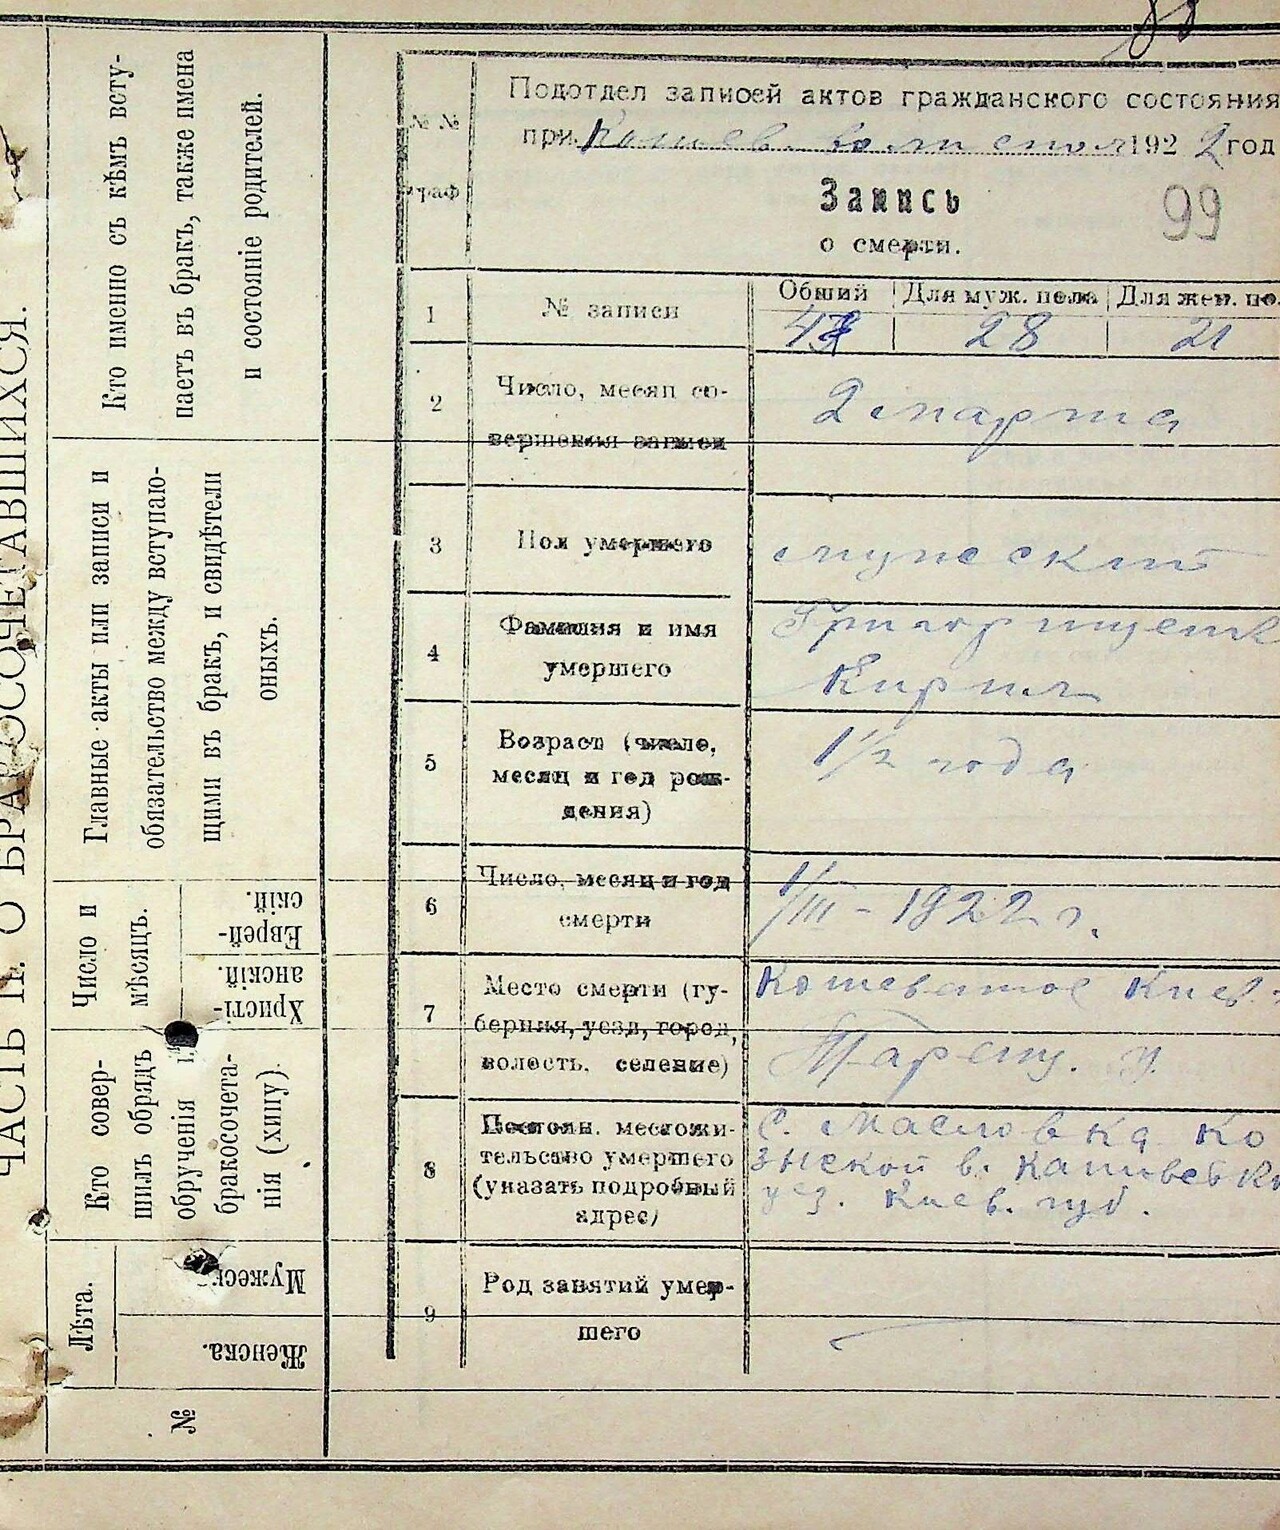 ЧАСТЬ II. О БРАКОСОЧЕТАВШИХСЯ.
Кто именно съ кѣмъ всту-
паетъ въ бракъ, также имена
и состояніе родителей.
Главные акты или записи и
обязательство между вступаю-
щими въ бракъ, и свидѣтели
оныхъ.
Число и
мѣсяцъ.
Еврей-
скій.
Христі-
анскій.
Кто совер-
шилъ обрядъ
обрученія и
бракосочета-
нія (хипу).
Лѣта.
Мужеск.
Женска.
№
№ №
граф
Подотдел записей актов гражданского состояния
при Кошев. вол 1922 год
Запись
о смерти.
99
1
№ записи
Общий
Для муж. пола
Для жен. по
28
21
2
Число, месяц со-
вершения записи
2 марта
3
Пол умершего
мужеский
4
Фамилия и имя
умершего
Кирил
5
Возраст (число,
месяц и год рож-
дения)
1 1/2 года
6
Число, месяц и год
смерти
1/III - 1922 г.
7
Место смерти (гу-
берния, уезд, город,
волость, селение)
Кошеватое Киев.
Таращ. у.
8
Постоян. местожи-
тельство умершего
(указать подробный
адрес)
С. Масловка Ко
зинской в. Каневск
уез. Киев. губ.
9
Род занятий умер-
шего